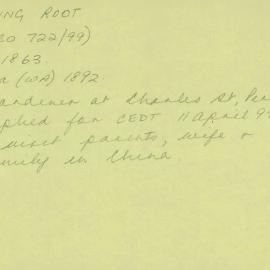 NG ROOT
CO 722/99)
1863.
a (WA) 1892.
ardener at Charles St, Per
plied for CEDT 11 April 99
visit parents, wife &
mily in China.